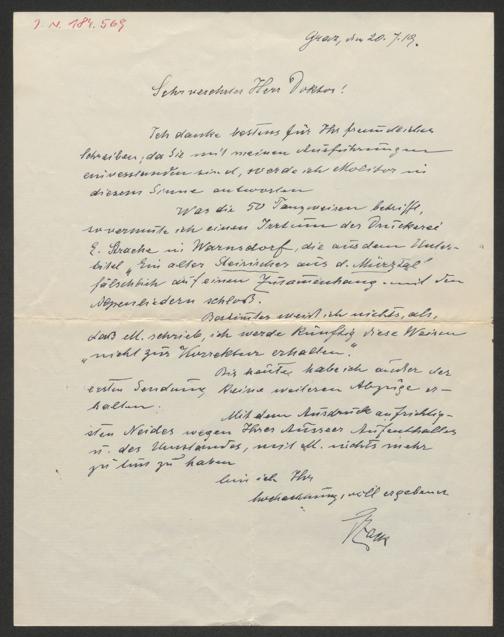 J. N. 184.569
Graz, den 20. 7. 19.
Sehr verehrter Herr Doktor!
Ich danke bestens für Ihr freundliches
Schreiben; da Sie mit meinen Ausführungen
einverstanden sind, werde ich Molitor in
diesem Sinne antworten
Was die 50 Tanzweisen betrifft,
so vermute ich einen Irrtum der Druckerei
E. Strache in Warnsdorf, die aus dem Unter-
titel „Ein alter Steirischer aus d. Mürztal"
fälschlich auf einen Zusammenhang mit den
Alpenliedern schloß.
Bestimmtes weiß ich nichts, als,
daß M. schrieb, ich werde künftig diese Weisen
„nicht zur Korrektur erhalten".
Bis heute habe ich außer der
ersten Sendung keine weiteren Abzüge er-
halten.
Mit dem Ausdruck aufrichtig-
sten Neides wegen Ihres Ausseer Aufenthaltes
u. des Umstandes, mit M. nichts mehr
zu tun zu haben
bin ich Ihr
hochachtungsvoll ergebener